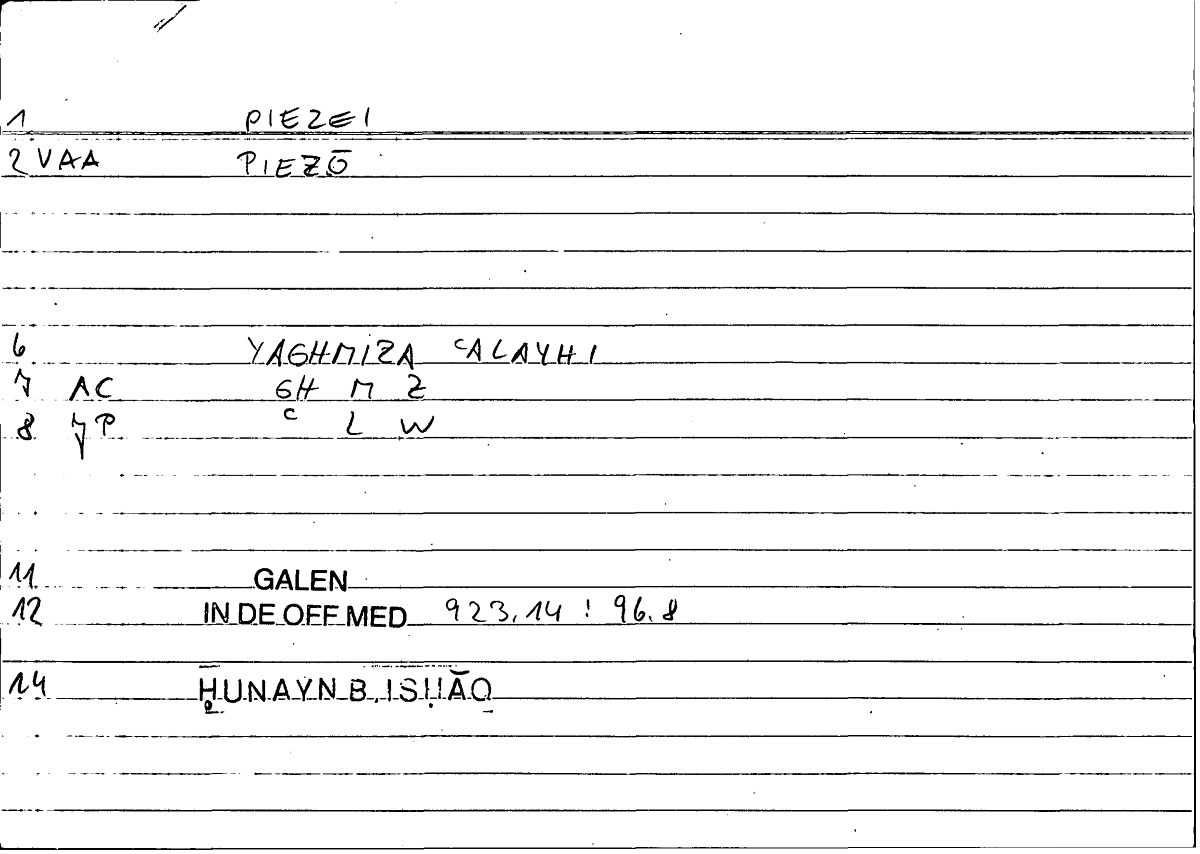 1 PIEZEI
2 VAA PIEZŌ
6 YAGHMIZA ᶜALAYHI
7 AC GH M Z
8 JP ᶜ L W
11 GALEN
12 IN DE OFF MED 923.14 : 96.8
14 ḤUNAYN B. ISḤĀQ